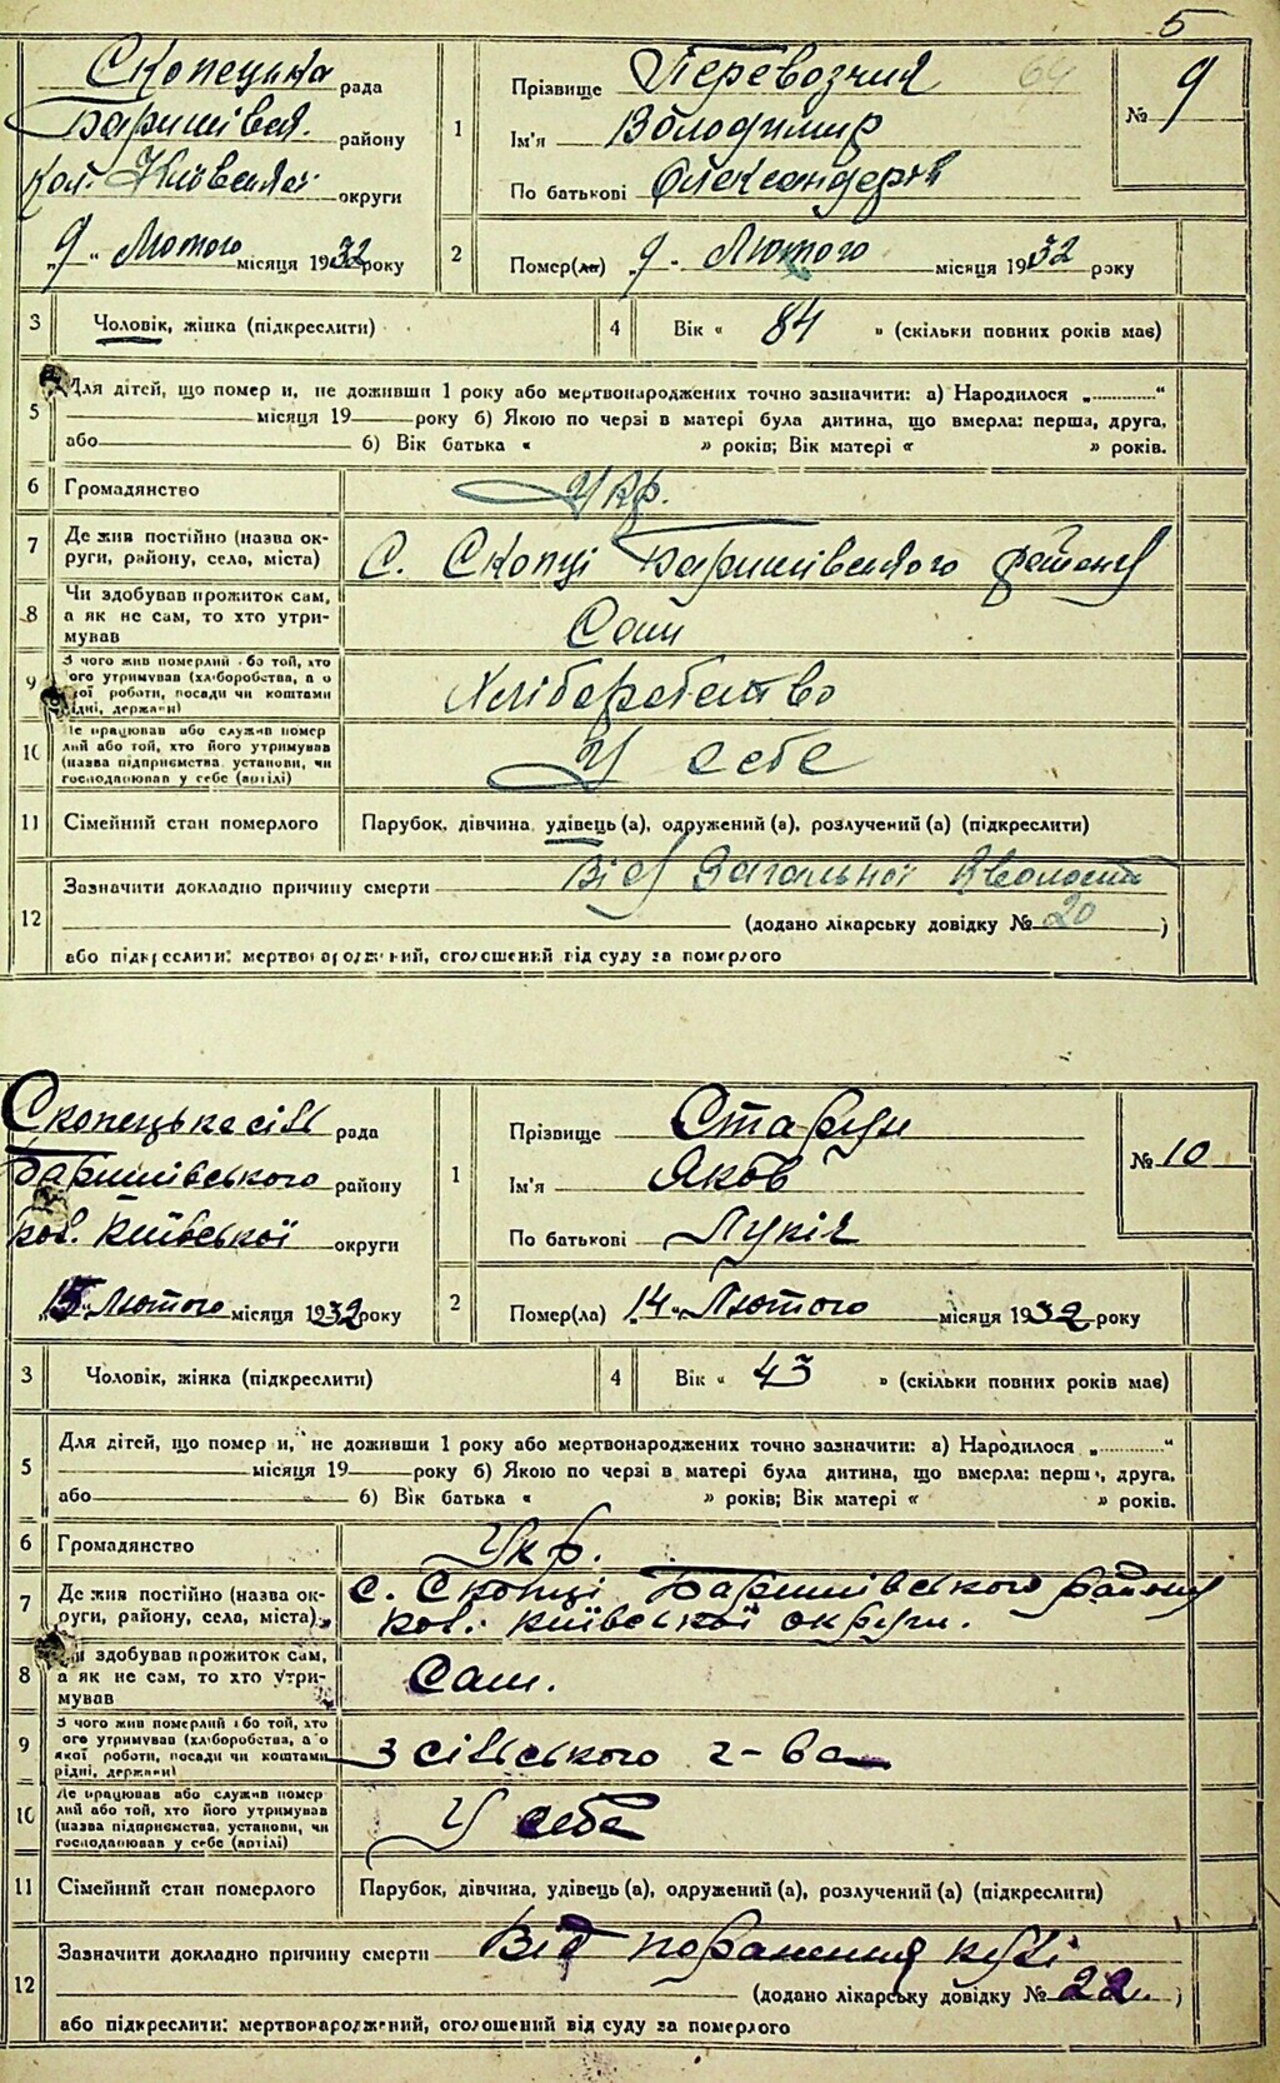 5
Скопецька рада
Баришівськ. району
кол. Київської округи
„9“ Лютого місяця 1932 року
1
Прізвище Перевозчик 64
Ім'я Володимир
По батькові Олександрів
№ 9
2 Помер(ла) „9“ Лютого місяця 1932 року
3 Чоловік, жінка (підкреслити)
4 Вік « 84 » (скільки повних років має)
5 Для дітей, що помер и, не доживши 1 року або мертвонароджених точно зазначити: а) Народилося „ “
місяця 19 року б) Якою по черзі в матері була дитина, що вмерла: перша, друга,
або б) Вік батька « » років; Вік матері « » років.
6 Громадянство Укр.
7 Де жив постійно (назва округи, району, села, міста) С. Скопці Баришівського району
8 Чи здобував прожиток сам,
а як не сам, то хто утримував
Сам
9 З чого жив померлий або той, хто
його утримував (хліборобства, а о
якої роботи, посади чи коштами
рідні, держави)
Хліборобство
10 Де працював або служив помер
лий або той, хто його утримував
(назва підприємства, установи, чи
господарював у себе (артілі)
У себе
11 Сімейний стан померлого Парубок, дівчина, удівець (а), одружений (а), розлучений (а) (підкреслити)
12 Зазначити докладно причину смерти Від Загальної Кволости
(додано лікарську довідку № 20 )
або підкреслити: мертвонароджений, оголошений від суду за померлого
Скопецька сіль рада
Баришівського району
кол. Київської округи
„15“ Лютого місяця 1932 року
1
Прізвище Старун
Ім'я Яков
По батькові Лукіч
№ 10
2 Помер(ла) „14“ Лютого місяця 1932 року
3 Чоловік, жінка (підкреслити)
4 Вік « 43 » (скільки повних років має)
5 Для дітей, що помер и, не доживши 1 року або мертвонароджених точно зазначити: а) Народилося „ “
місяця 19 року б) Якою по черзі в матері була дитина, що вмерла: перш , друга,
або б) Вік батька « » років; Вік матері « » років.
6 Громадянство Укр.
7 Де жив постійно (назва округи, району, села, міста) с. Скопці Баришівського району
кол. Київської округи.
8 Чи здобував прожиток сам,
а як не сам, то хто утримував
Сам.
9 З чого жив померлий або той, хто
ого утримував (хліборобства, а о
якої роботи, посади чи коштами
рідні, держави)
З сільського г-ва
10 Де працював або служив помер
лий або той, хто його утримував
(назва підприємства, установи, чи
господарював у себе (артілі)
У себе
11 Сімейний стан померлого Парубок, дівчина, удівець (а), одружений (а), розлучений (а) (підкреслити)
12 Зазначити докладно причину смерти Від поранення кулі
(додано лікарську довідку № 22. )
або підкреслити: мертвонароджений, оголошений від суду за померлого